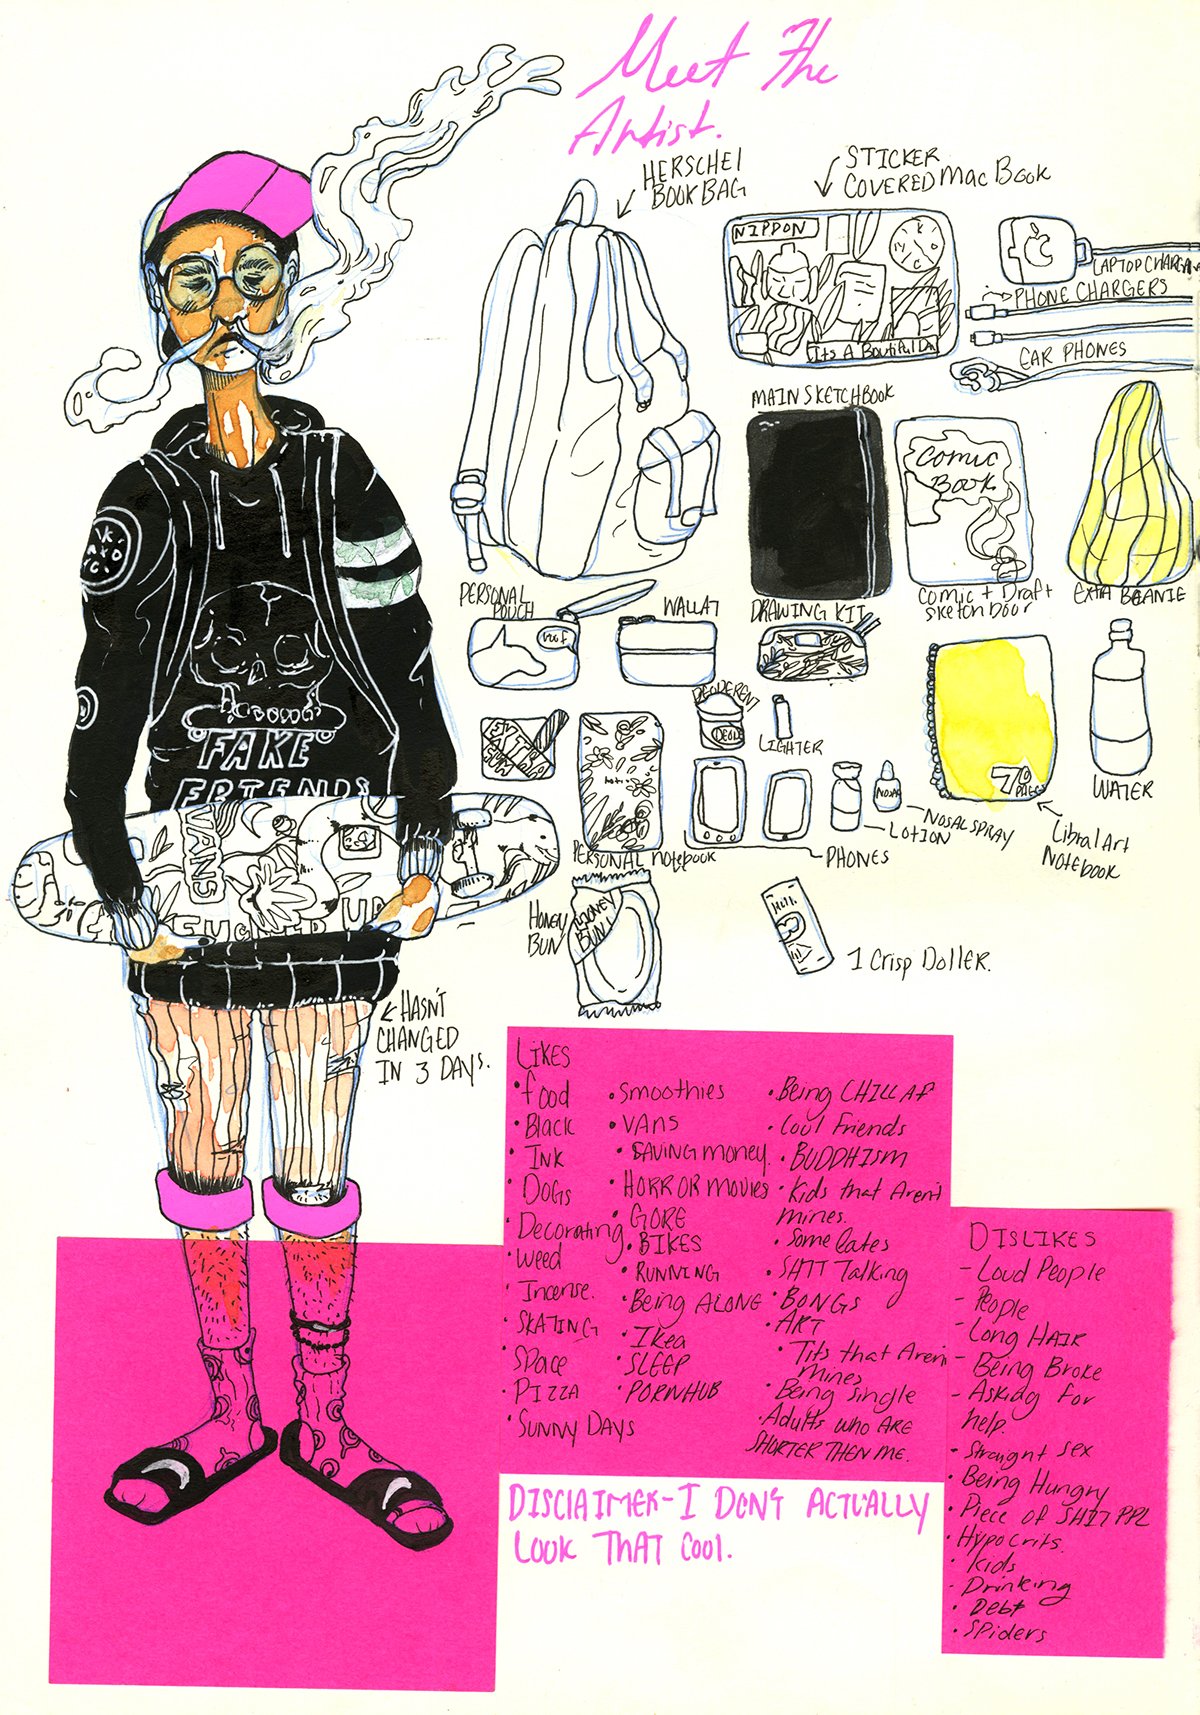 Meet The
Artist.
HERSCHEl
BOOKBAG
STICKER
COVERED Mac Book
NIPPON
Its A Boutiful Da
LAPTOP CHARGA
PHONE CHARGERS
EAR PHONES
MAIN SKETCHBOOK
Comic
Book
Comic + Draft
Sketchboor
EXTRA BEANIE
PERSONAL
POUCH
WALLAT
DRAWING KIT
DEODERENT
DEOD
LIGHTER
EXTRA
NOSAL
PERSONAL Notebook
PHONES
LOTION
NOSAL SPRAY
70
PAGES
WATER
Libral Art
NOtEbook
HONEY
BUN
HONEY
BUN!
1 Crisp DollER.
K
FAKE
FRIENDS
VANS
HASN'T
CHANGED
IN 3 DAYS.
LIKES
• food
• Black
• INK
• DOGS
• Decorating
• Weed
• Incense.
• SKATING
• Space
• PIZZA
• SUNNY DAYS
• Smoothies
• VANS
• SAVING money.
• HORROR movies
• GORE
• BIKES
• RUNNING
• Being ALONE
• Ikea
• SLEEP
• PORNHUB
• Being CHILL AF
• Cool Friends
• BUDDHISM
• Kids that Aren't
mines.
• Some lates
• SHIT Talking
• BONGS
• ART
• Tits that Aren't
mines
• Being single
• Adults who ARE
SHORTER THEN ME.
DISLIKES
- Loud People
- People
- Long HAIR
- Being Broke
- Asking For
help.
• Straignt sex
• Being Hungry
• Piece of SHIT PPL
• Hypocrits.
• Kids
- Drinking
• Debt
• SPiders
DISCLAIMER-I DON'T ACTUALLY
LOOK THAT COOL.